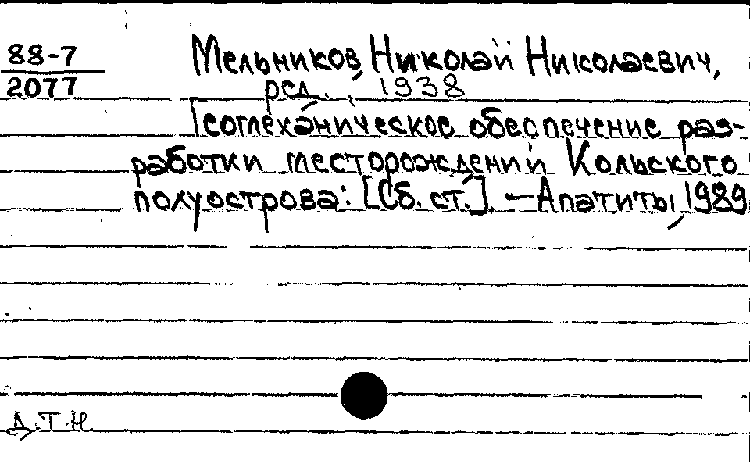 88-7
2077
Мельников, Николай Николаевич,
ред., 1938
Геомеханическое обеспечение раз-
работки месторождений Кольского
полуострова: [Сб. ст.]. — Апатиты, 1989
д.т.н.